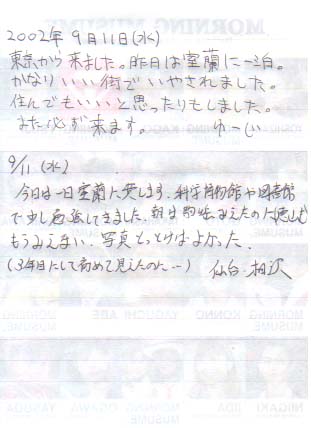 2002年 9月11日(水)
東京から来ました。昨日は室蘭に一泊。
かなりいい街でいやされました。
住んでもいいと思ったりもしました。
また必ず来ます。 ゆーじ
9/11 (水)
今日は一日室蘭に
科学博物館や図書館
で少し してきました。朝は
もうみえまい。写真とっとけばよかった。
(3年目にして初めて見えたのに…) 仙台・相沢
MORNING MUSUME
KONNO
YAGUCHI
ABE
NIIGAKI
IIDA
OGAWA
YASUDA